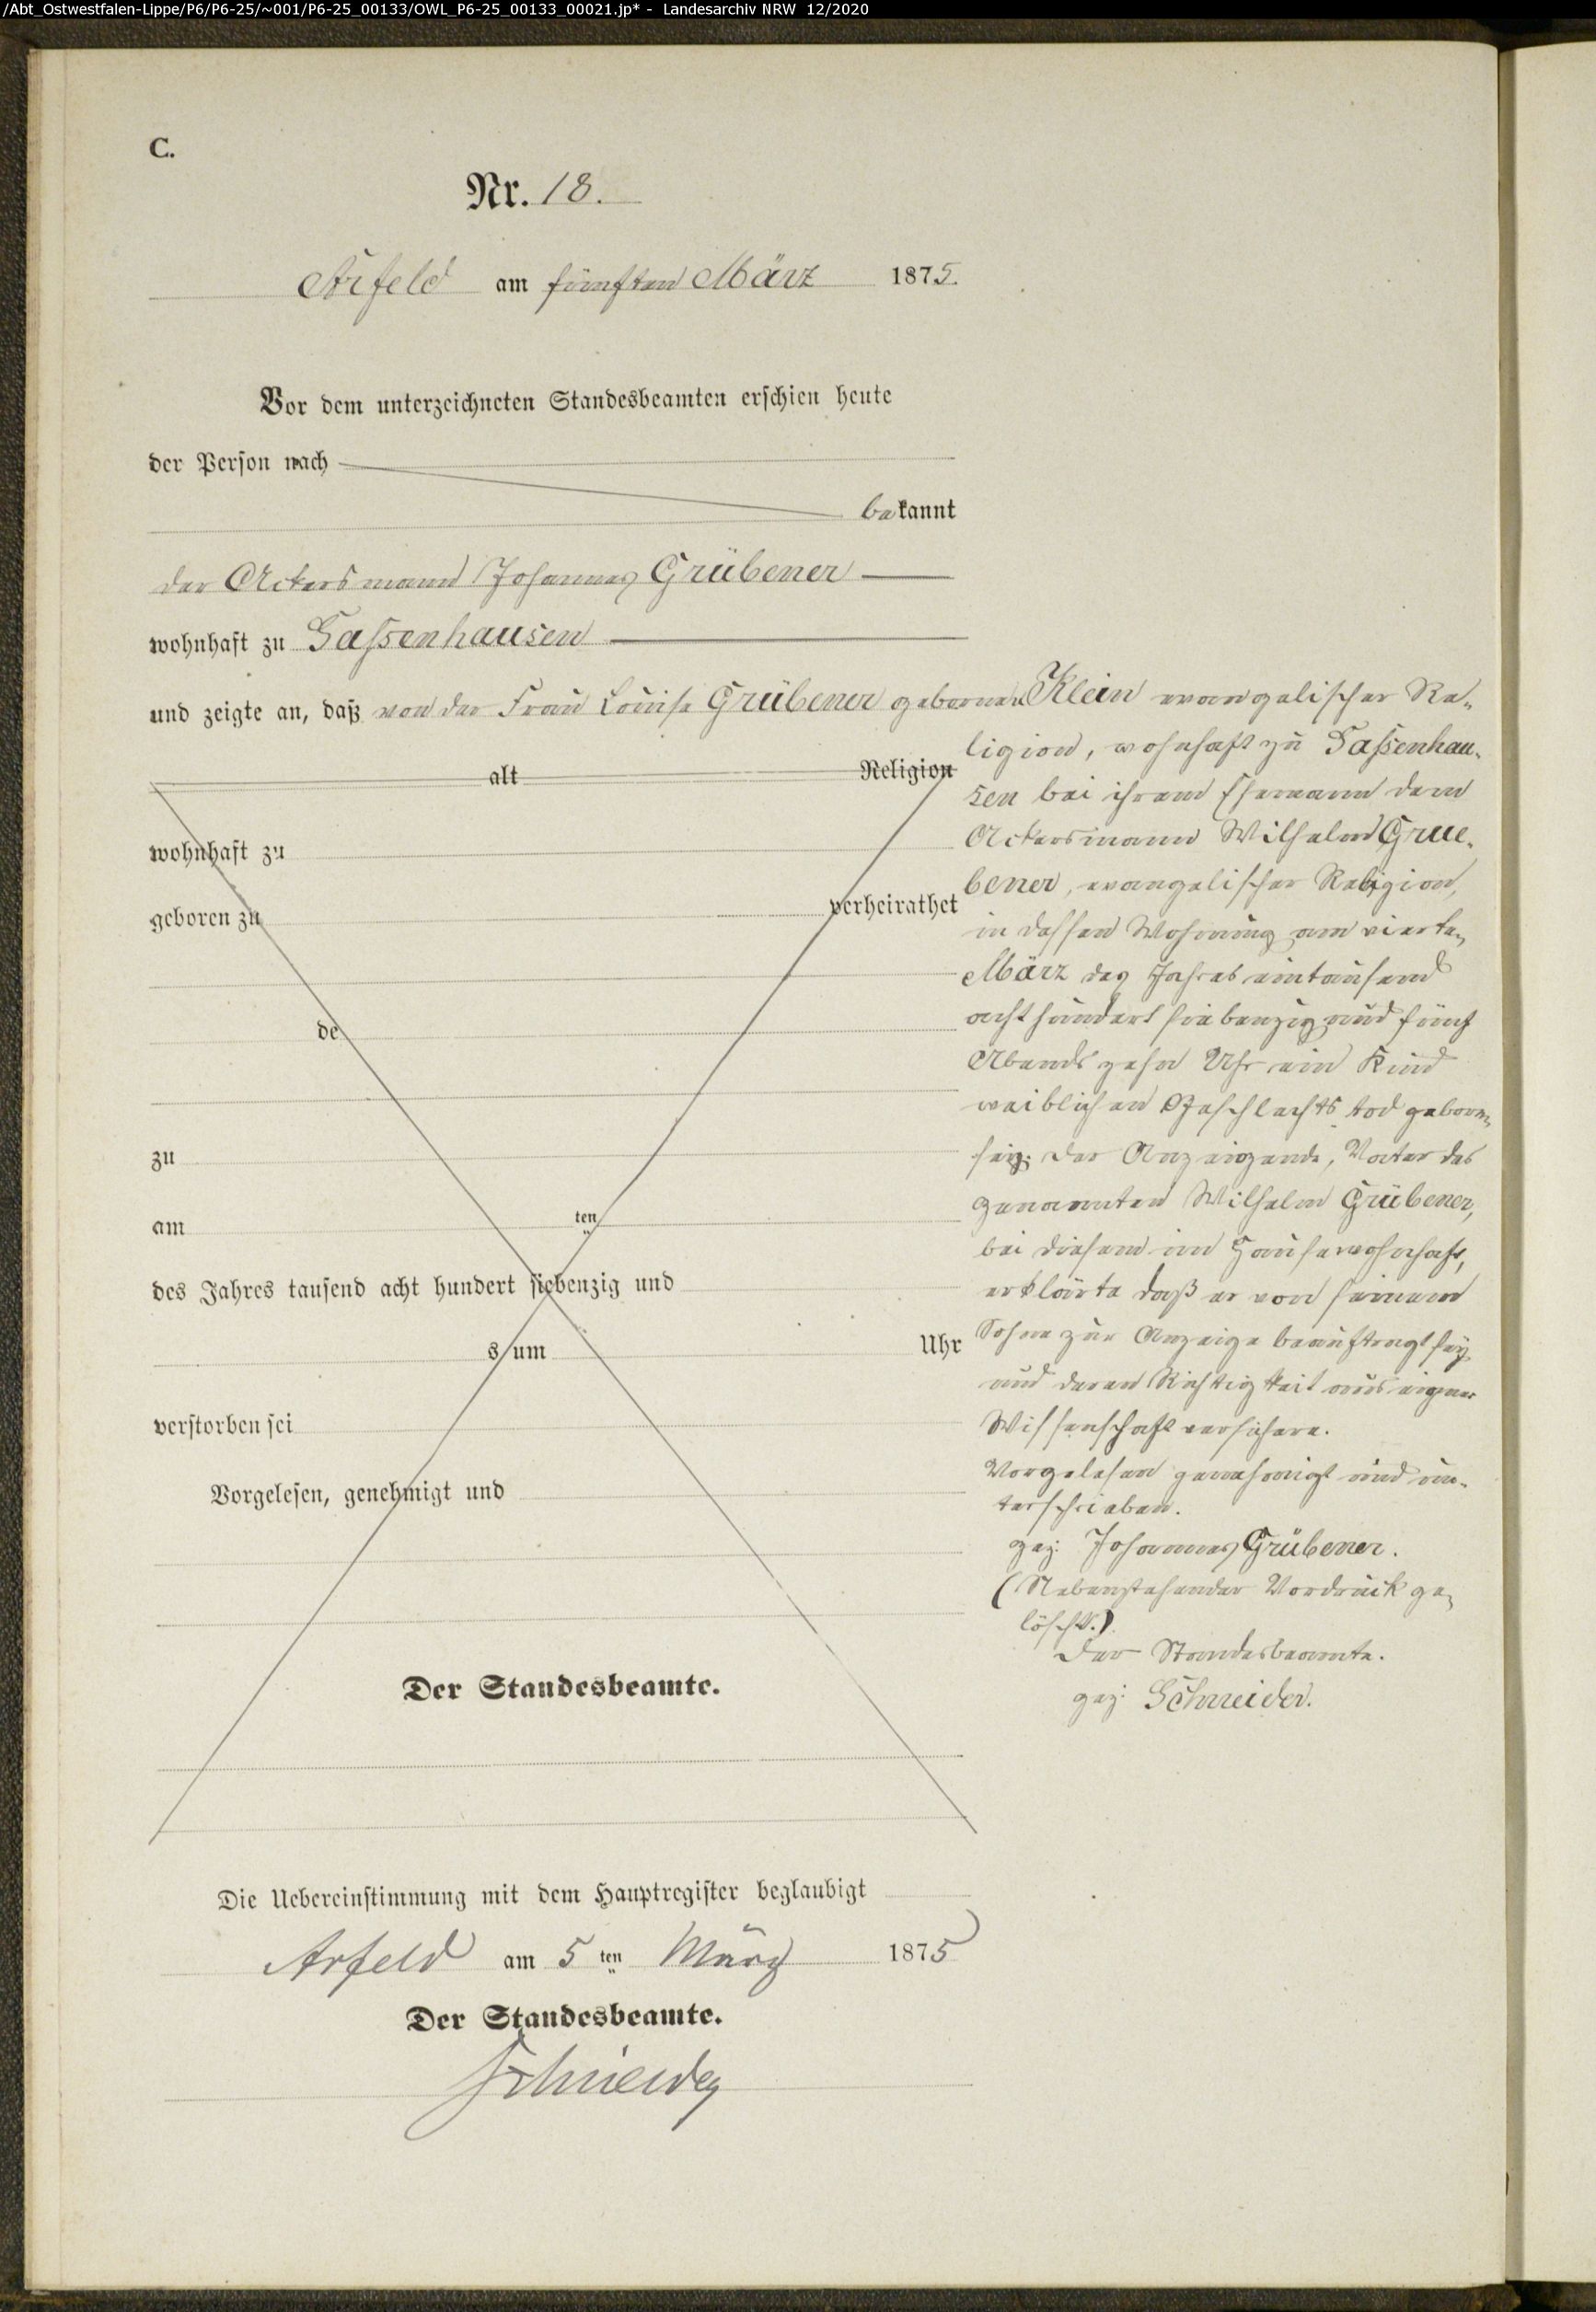 /Abt_Ostwestfalen-Lippe/P6/P6-25/~001/P6-25_00133/OWL_P6-25_00133_00021.jp* - Landesarchiv NRW 12/2020
C.
Nr. 18.
Arfeld am fünften März 1875.
Vor dem unterzeichneten Standesbeamten erschien heute
der Person nach
bekannt
der Ackersmann Johannes Grübener
wohnhaft zu Sassenhausen
und zeigte an, daß von der Frau Louise Grübener geborenen Klein evangelischer Re-
ligion, wohnhaft zu Sassenhau-
sen bei ihrem Ehemann dem
Ackersmann Wilhelm Grue-
bener, evangelischer Religion,
in dessen Wohnung am vierten
März des Jahres eintausend
acht hundert siebenzig und fünf
Abends zehn Uhr ein Kind
weiblichen Geschlechts tod geboren
sey. Der Anzeigende, Vater des
genannten Wilhelm Grübener,
bei diesem im Hause wohnhaft,
erklärte daß er von seinem
Sohne zur Anzeige beauftragt sey
und deren Richtigkeit aus eigner
Wissenschaft versichere.
Vorgelesen genehmigt und un-
terschrieben.
gez: Johannes Grübener.
(Nebenstehender Vordruck ge-
löscht.)
Der Standesbeamte.
gez: Schneider.
alt Religion
wohnhaft zu
geboren zu
verheirathet
de
zu
am ten
des Jahres tausend acht hundert siebenzig und
s um Uhr
verstorben sei
Vorgelesen, genehmigt und
Der Standesbeamte.
Die Uebereinstimmung mit dem Hauptregister beglaubigt
Arfeld am 5 ten März 1875
Der Standesbeamte.
Schneider